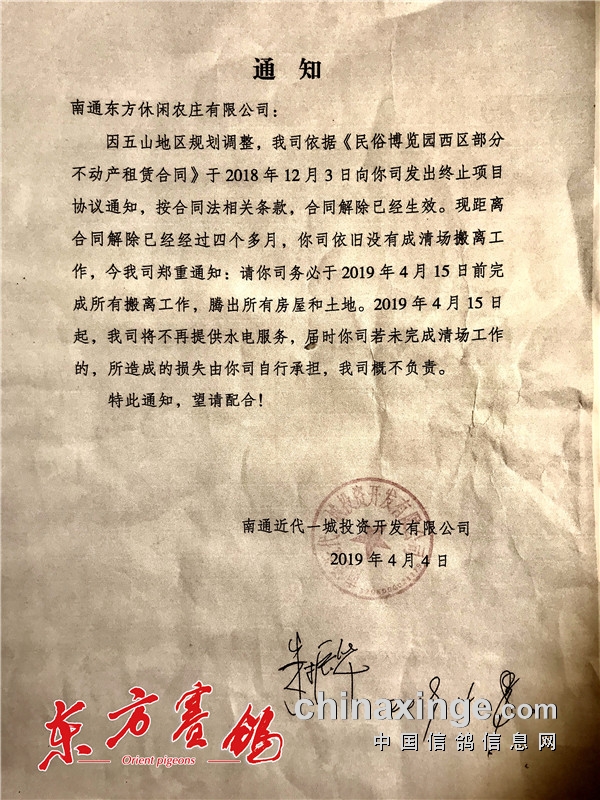 通 知
南通东方休闲农庄有限公司：
因五山地区规划调整，我司依据《民俗博览园西区部分
不动产租赁合同》于2018年12月3日向你司发出终止项目
协议通知，按合同法相关条款，合同解除已经生效。现距离
合同解除已经经过四个多月，你司依旧没有成清场搬离工
作，今我司郑重通知：请你司务必于2019年4月15日前完
成所有搬离工作，腾出所有房屋和土地。2019年4月15日
起，我司将不再提供水电服务，届时你司若未完成清场工作
的，所造成的损失由你司自行承担，我司概不负责。
特此通知，望请配合！
南通近代一城投资开发有限公司
2019年4月4日
东方赛鸽
Orient pigeons
chinaxinge.com
中国信鸽信息网